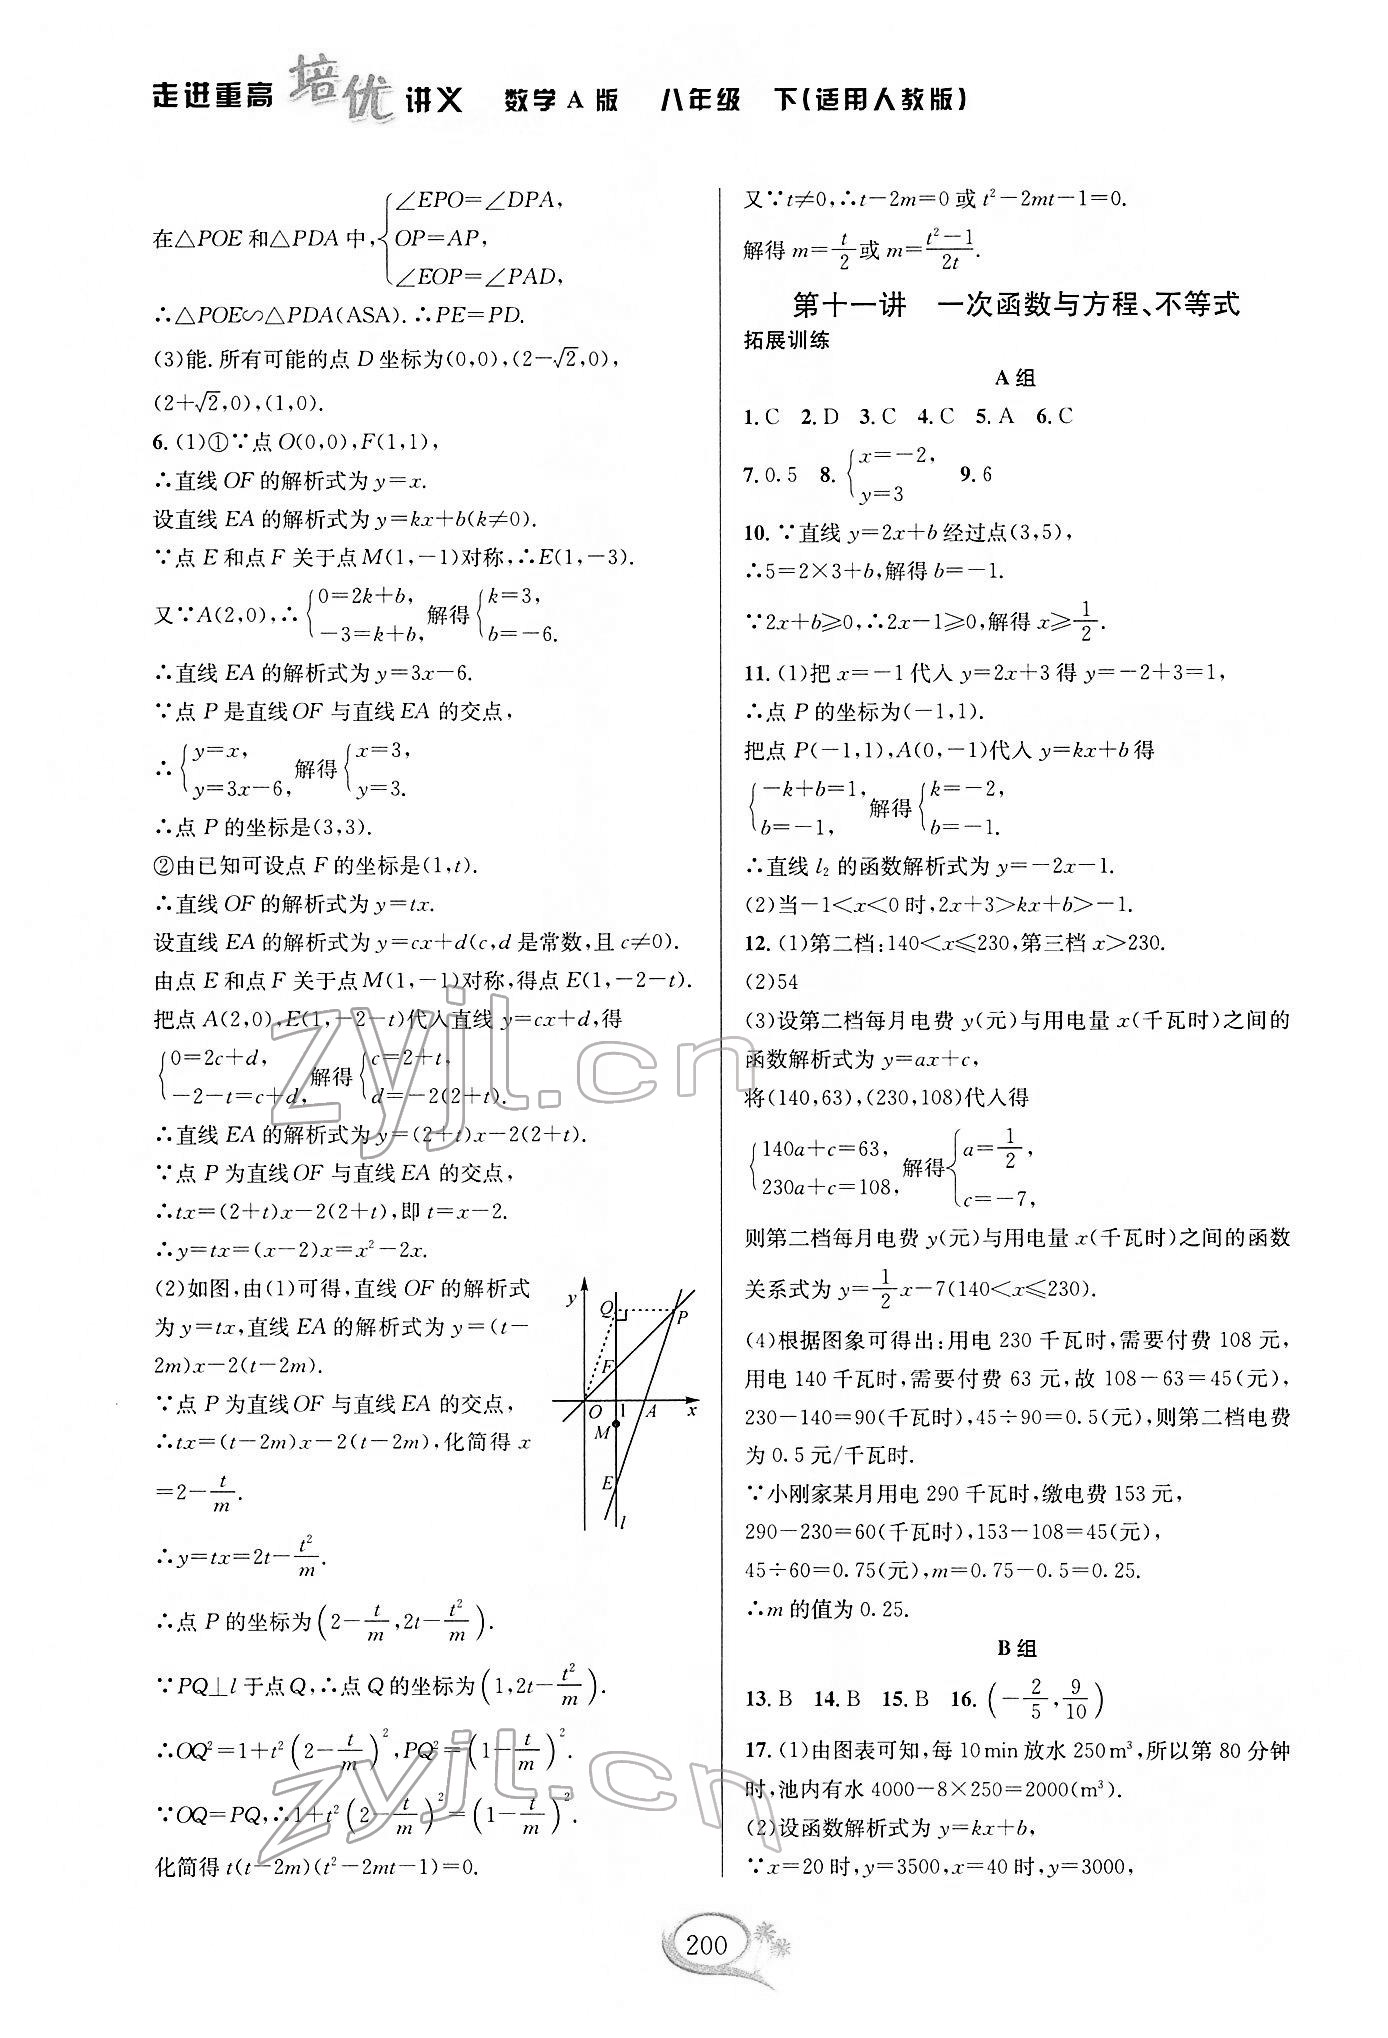 走进重高 培优 讲义 数学A版 八年级 下(适用人教版)
在△POE和△PDA中,{∠EPO=∠DPA,
OP=AP,
∠EOP=∠PAD,
∴△POE∽△PDA(ASA).∴PE=PD.
(3)能.所有可能的点D坐标为(0,0),(2-√2,0),
(2+√2,0),(1,0).
6.(1)①∵点O(0,0),F(1,1),
∴直线OF的解析式为y=x.
设直线EA的解析式为y=kx+b(k≠0).
∵点E和点F关于点M(1,-1)对称,∴E(1,-3).
又∵A(2,0),∴{0=2k+b, -3=k+b, 解得{k=3, b=-6.
∴直线EA的解析式为y=3x-6.
∵点P是直线OF与直线EA的交点,
∴{y=x, y=3x-6, 解得{x=3, y=3.
∴点P的坐标是(3,3).
②由已知可设点F的坐标是(1,t).
∴直线OF的解析式为y=tx.
设直线EA的解析式为y=cx+d(c,d是常数,且c≠0).
由点E和点F关于点M(1,-1)对称,得点E(1,-2-t).
把点A(2,0),E(1,-2-t)代入直线y=cx+d,得
{0=2c+d, -2-t=c+d, 解得{c=2+t, d=-2(2+t).
∴直线EA的解析式为y=(2+t)x-2(2+t).
∵点P为直线OF与直线EA的交点,
∴tx=(2+t)x-2(2+t),即t=x-2.
∴y=tx=(x-2)x=x²-2x.
(2)如图,由(1)可得,直线OF的解析式
为y=tx,直线EA的解析式为y=(t-
2m)x-2(t-2m).
∵点P为直线OF与直线EA的交点,
∴tx=(t-2m)x-2(t-2m),化简得x
=2-t/m.
∴y=tx=2t-t²/m.
y
Q
P
F
O 1 A x
M
E
l
∴点P的坐标为(2-t/m,2t-t²/m).
∵PQ⊥l于点Q,∴点Q的坐标为(1,2t-t²/m).
∴OQ²=1+t²(2-t/m)²,PQ²=(1-t/m)².
∵OQ=PQ,∴1+t²(2-t/m)²=(1-t/m)².
化简得t(t-2m)(t²-2mt-1)=0.
又∵t≠0,∴t-2m=0或t²-2mt-1=0.
解得m=t/2或m=(t²-1)/2t.
第十一讲 一次函数与方程、不等式
拓展训练
A组
1.C 2.D 3.C 4.C 5.A 6.C
7.0.5 8.{x=-2, y=3 9.6
10.∵直线y=2x+b经过点(3,5),
∴5=2×3+b,解得b=-1.
∵2x+b≥0,∴2x-1≥0,解得x≥1/2.
11.(1)把x=-1代入y=2x+3得y=-2+3=1,
∴点P的坐标为(-1,1).
把点P(-1,1),A(0,-1)代入y=kx+b得
{-k+b=1, b=-1, 解得{k=-2, b=-1.
∴直线l₂的函数解析式为y=-2x-1.
(2)当-1<x<0时,2x+3>kx+b>-1.
12.(1)第二档:140<x≤230,第三档x>230.
(2)54
(3)设第二档每月电费y(元)与用电量x(千瓦时)之间的
函数解析式为y=ax+c,
将(140,63),(230,108)代入得
{140a+c=63, 230a+c=108, 解得{a=1/2, c=-7,
则第二档每月电费y(元)与用电量x(千瓦时)之间的函数
关系式为y=1/2x-7(140<x≤230).
(4)根据图象可得出:用电230千瓦时,需要付费108元,
用电140千瓦时,需要付费63元,故108-63=45(元),
230-140=90(千瓦时),45÷90=0.5(元),则第二档电费
为0.5元/千瓦时.
∵小刚家某月用电290千瓦时,缴电费153元,
290-230=60(千瓦时),153-108=45(元),
45÷60=0.75(元),m=0.75-0.5=0.25.
∴m的值为0.25.
B组
13.B 14.B 15.B 16.(-2/5,9/10)
17.(1)由图表可知,每10min放水250m³,所以第80分钟
时,池内有水4000-8×250=2000(m³).
(2)设函数解析式为y=kx+b,
∵x=20时,y=3500,x=40时,y=3000,
200
zyjl.cn
zyjl.cn